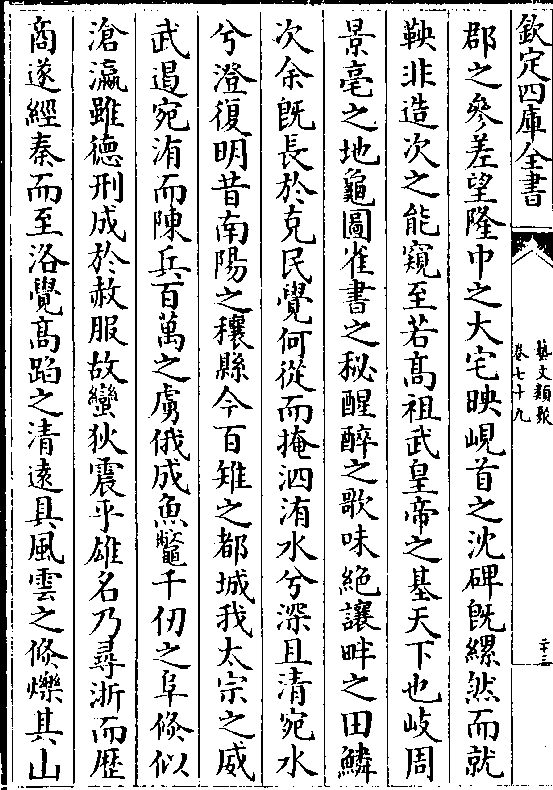 欽定四庫全書
藝文類聚
卷七十九
二十三
郡之參差望隆中之大宅映峴首之沈碑既纍然而就
鞅非造次之能窺至若髙祖武皇帝之基天下也岐周
景亳之地龜圖雀書之秘醒醉之歌味絶讓畔之田鱗
次余既長於克民覺何從而掩泗洧水兮深且清宛水
兮澄復明昔南陽之穰縣今百雉之都城我太宗之威
武遏宛洧而陳兵百萬之虜俄成魚鼈千仞之阜倐似
滄瀛雖德刑成於赦服故蠻狄震乎雄名乃尋浙而歴
商遂經秦而至洛覺髙蹈之清逺具風雲之倐爍其山